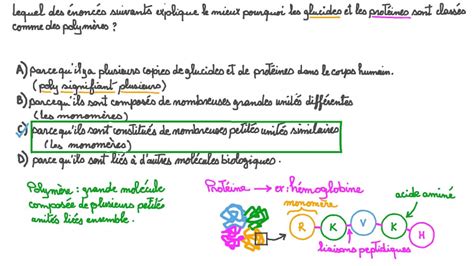 Lequel des énoncés suivants explique le mieux pourquoi les glucides et les protéines sont classés
comme des polymères ?
A) parce qu'il y a plusieurs copies de glucides et de protéines dans le corps humain.
(poly signifiant plusieurs)
B) parce qu'ils sont composés de nombreuses grandes unités différentes
(les monomères)
C) parce qu'ils sont constitués de nombreuses petites unités similaires
(les monomères)
D) parce qu'ils sont liés à d'autres molécules biologiques.
Polymère : grande molécule
composée de plusieurs petites
unités liées ensemble.
Protéine → ex : hémoglobine
monomère
acide aminé
R K V K H
liaisons peptidiques